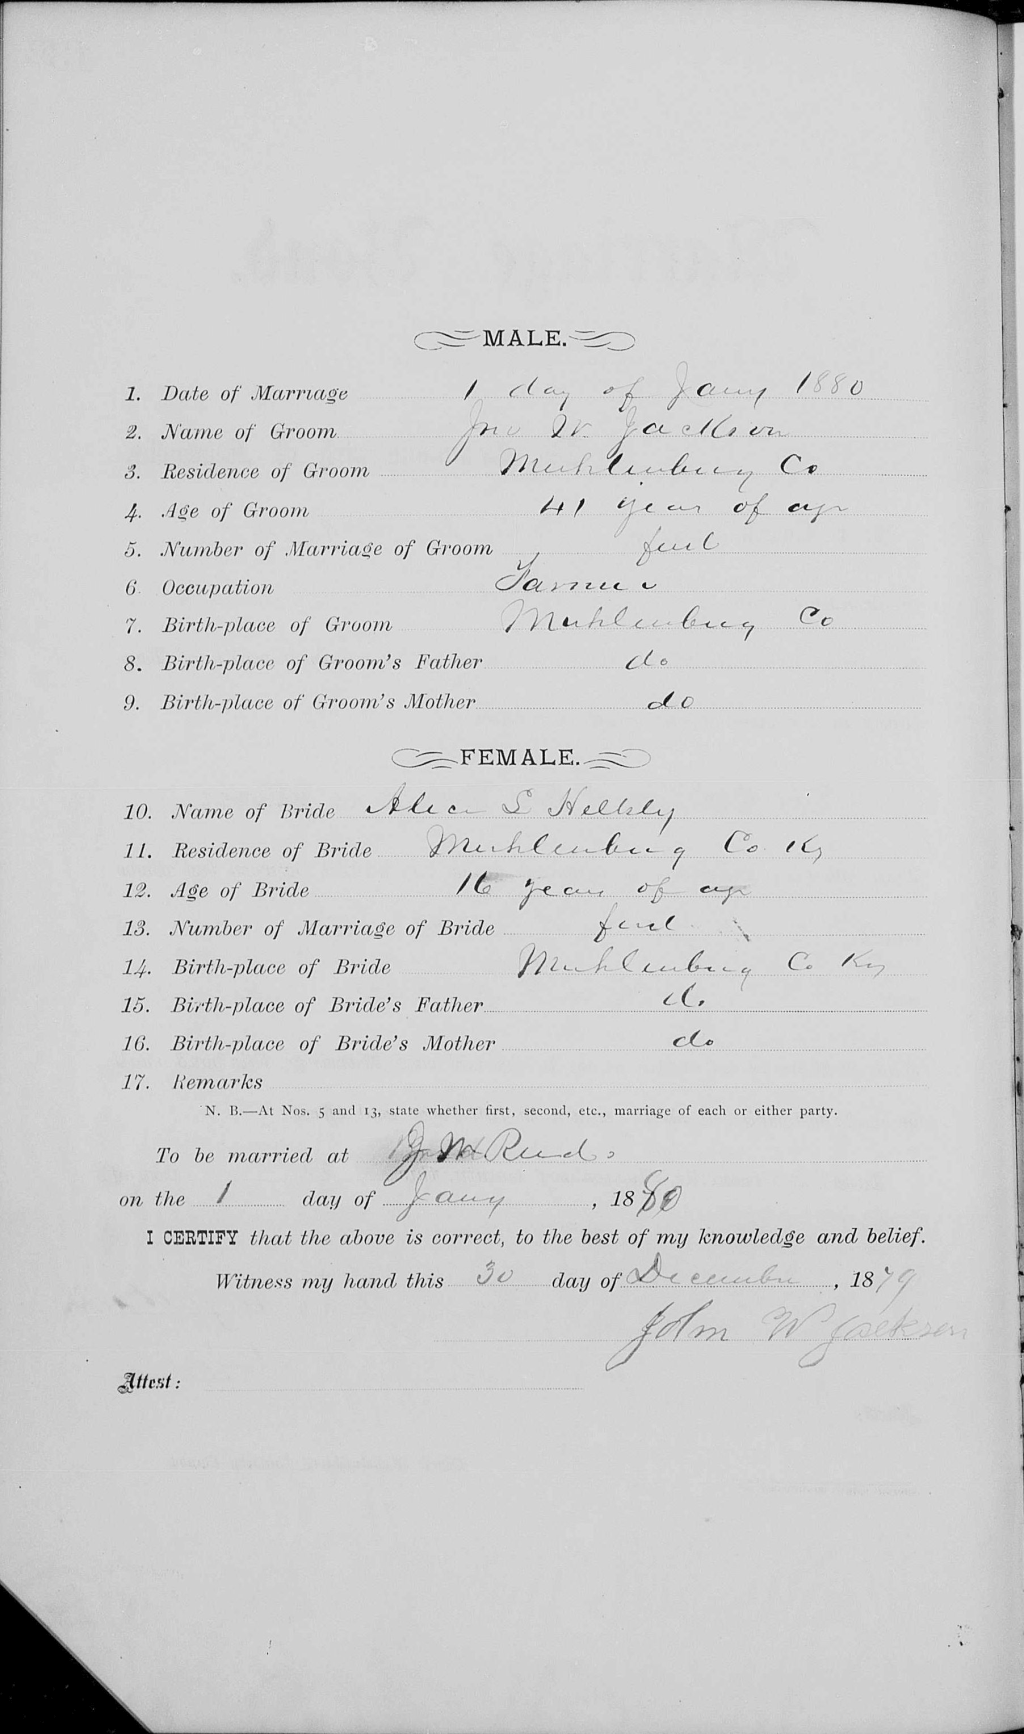 MALE.
1. Date of Marriage 1 day of Jany 1880
2. Name of Groom Jno W. Jackson
3. Residence of Groom Muhlenburg Co
4. Age of Groom 41 year of age
5. Number of Marriage of Groom first
6 Occupation Farmer
7. Birth-place of Groom Muhlenburg Co
8. Birth-place of Groom's Father do
9. Birth-place of Groom's Mother do
FEMALE.
10. Name of Bride Alice
11. Residence of Bride Muhlenburg Co Ky
12. Age of Bride 16 years of age
13. Number of Marriage of Bride first
14. Birth-place of Bride Muhlenburg Co Ky
15. Birth-place of Bride's Father do
16. Birth-place of Bride's Mother do
17. Remarks
N. B.—At Nos. 5 and 13, state whether first, second, etc., marriage of each or either party.
To be married at
on the 1 day of Jany, 1880
I CERTIFY that the above is correct, to the best of my knowledge and belief.
Witness my hand this 30 day of December, 1879
John W Jackson
Attest: